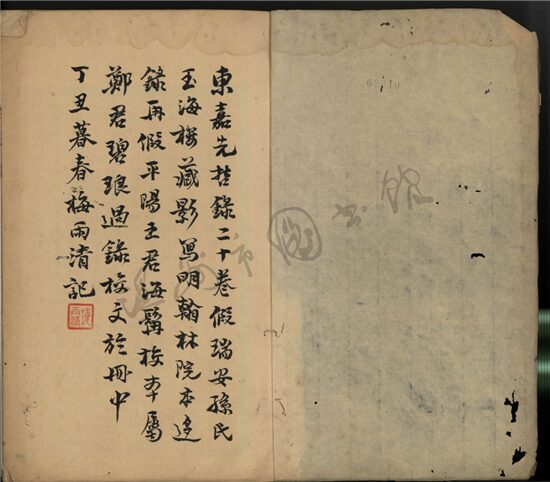 東嘉先哲錄二十卷假瑞安孫氏
玉海樓藏影寫明翰林院本迻
錄再假平陽王君海髯校本屬
鄭君碧琅過錄校文於冊中
丁丑暮春梅雨清記
温州市图书馆